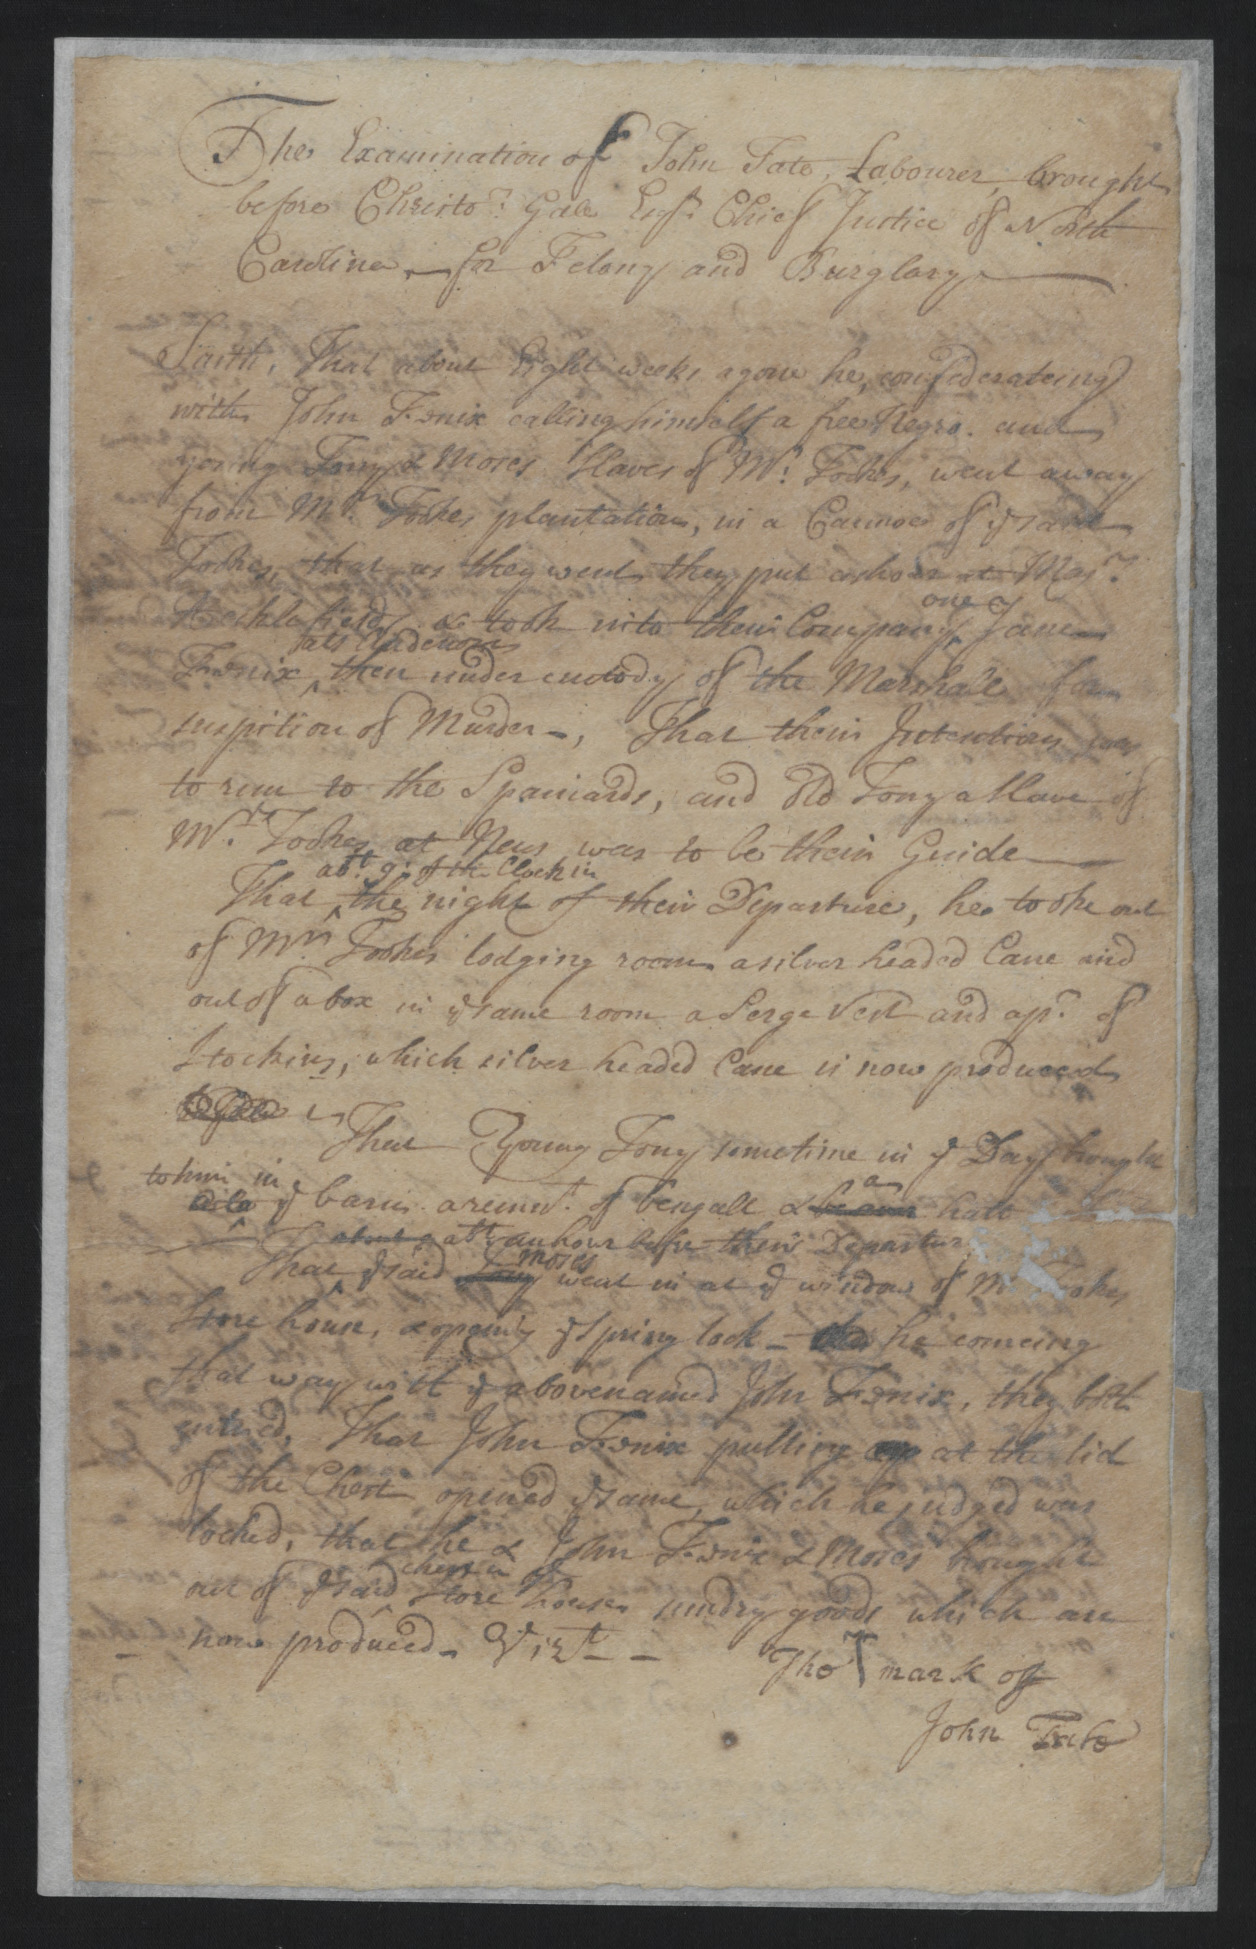 The Examination of John Tate, Labourer, brought
before Christor. Gale Esqr. Chief Justice of North
Carolina, for Felony and Burglary
Saith, That about Eight weeks agone he, confederateing
with John Fenix calling himself a free Negro. and
young Tony & Moses Slaves of Mr. Tookes, went away
from Mr. Tookes plantation, in a Cannoe of ye said
Tookes, that as they went they put ashoar at Majr.
& took into their Company one Jane
Fenix als then under custody of the Marshall for
suspition of Murder –, That their Intentions was
to run to the Spaniards, and Old Tony a Slave of
Mr. Tookes at Neus was to be their Guide
That abt. 9: of the Clock in the night of their Departure, he tooke out
of Mrs. Tookes lodging room a silver headed Cane and
out of a box in ye same room a Serge Vest and a pr. of
Stockins, which silver headed Cane is now produced
That Young Tony sometime in ye Day brought
to him in ye barn a remnt. of bengall & a hatt
That abt. an hour before their Departure
ye said Moses went in at ye window of Mr. Tookes
Store house, & opening ye spring lock – he comeing
that way with ye abovenamed John Fenix, they both
entred. That John Fenix pulling at the lid
of the Chest opened ye same, which he judged was
locked, that he & John Fenix & Moses brought
out of ye said chest in ye Store house sundry goods which are
now produced – Vizt. – –
The T mark of
John Tate